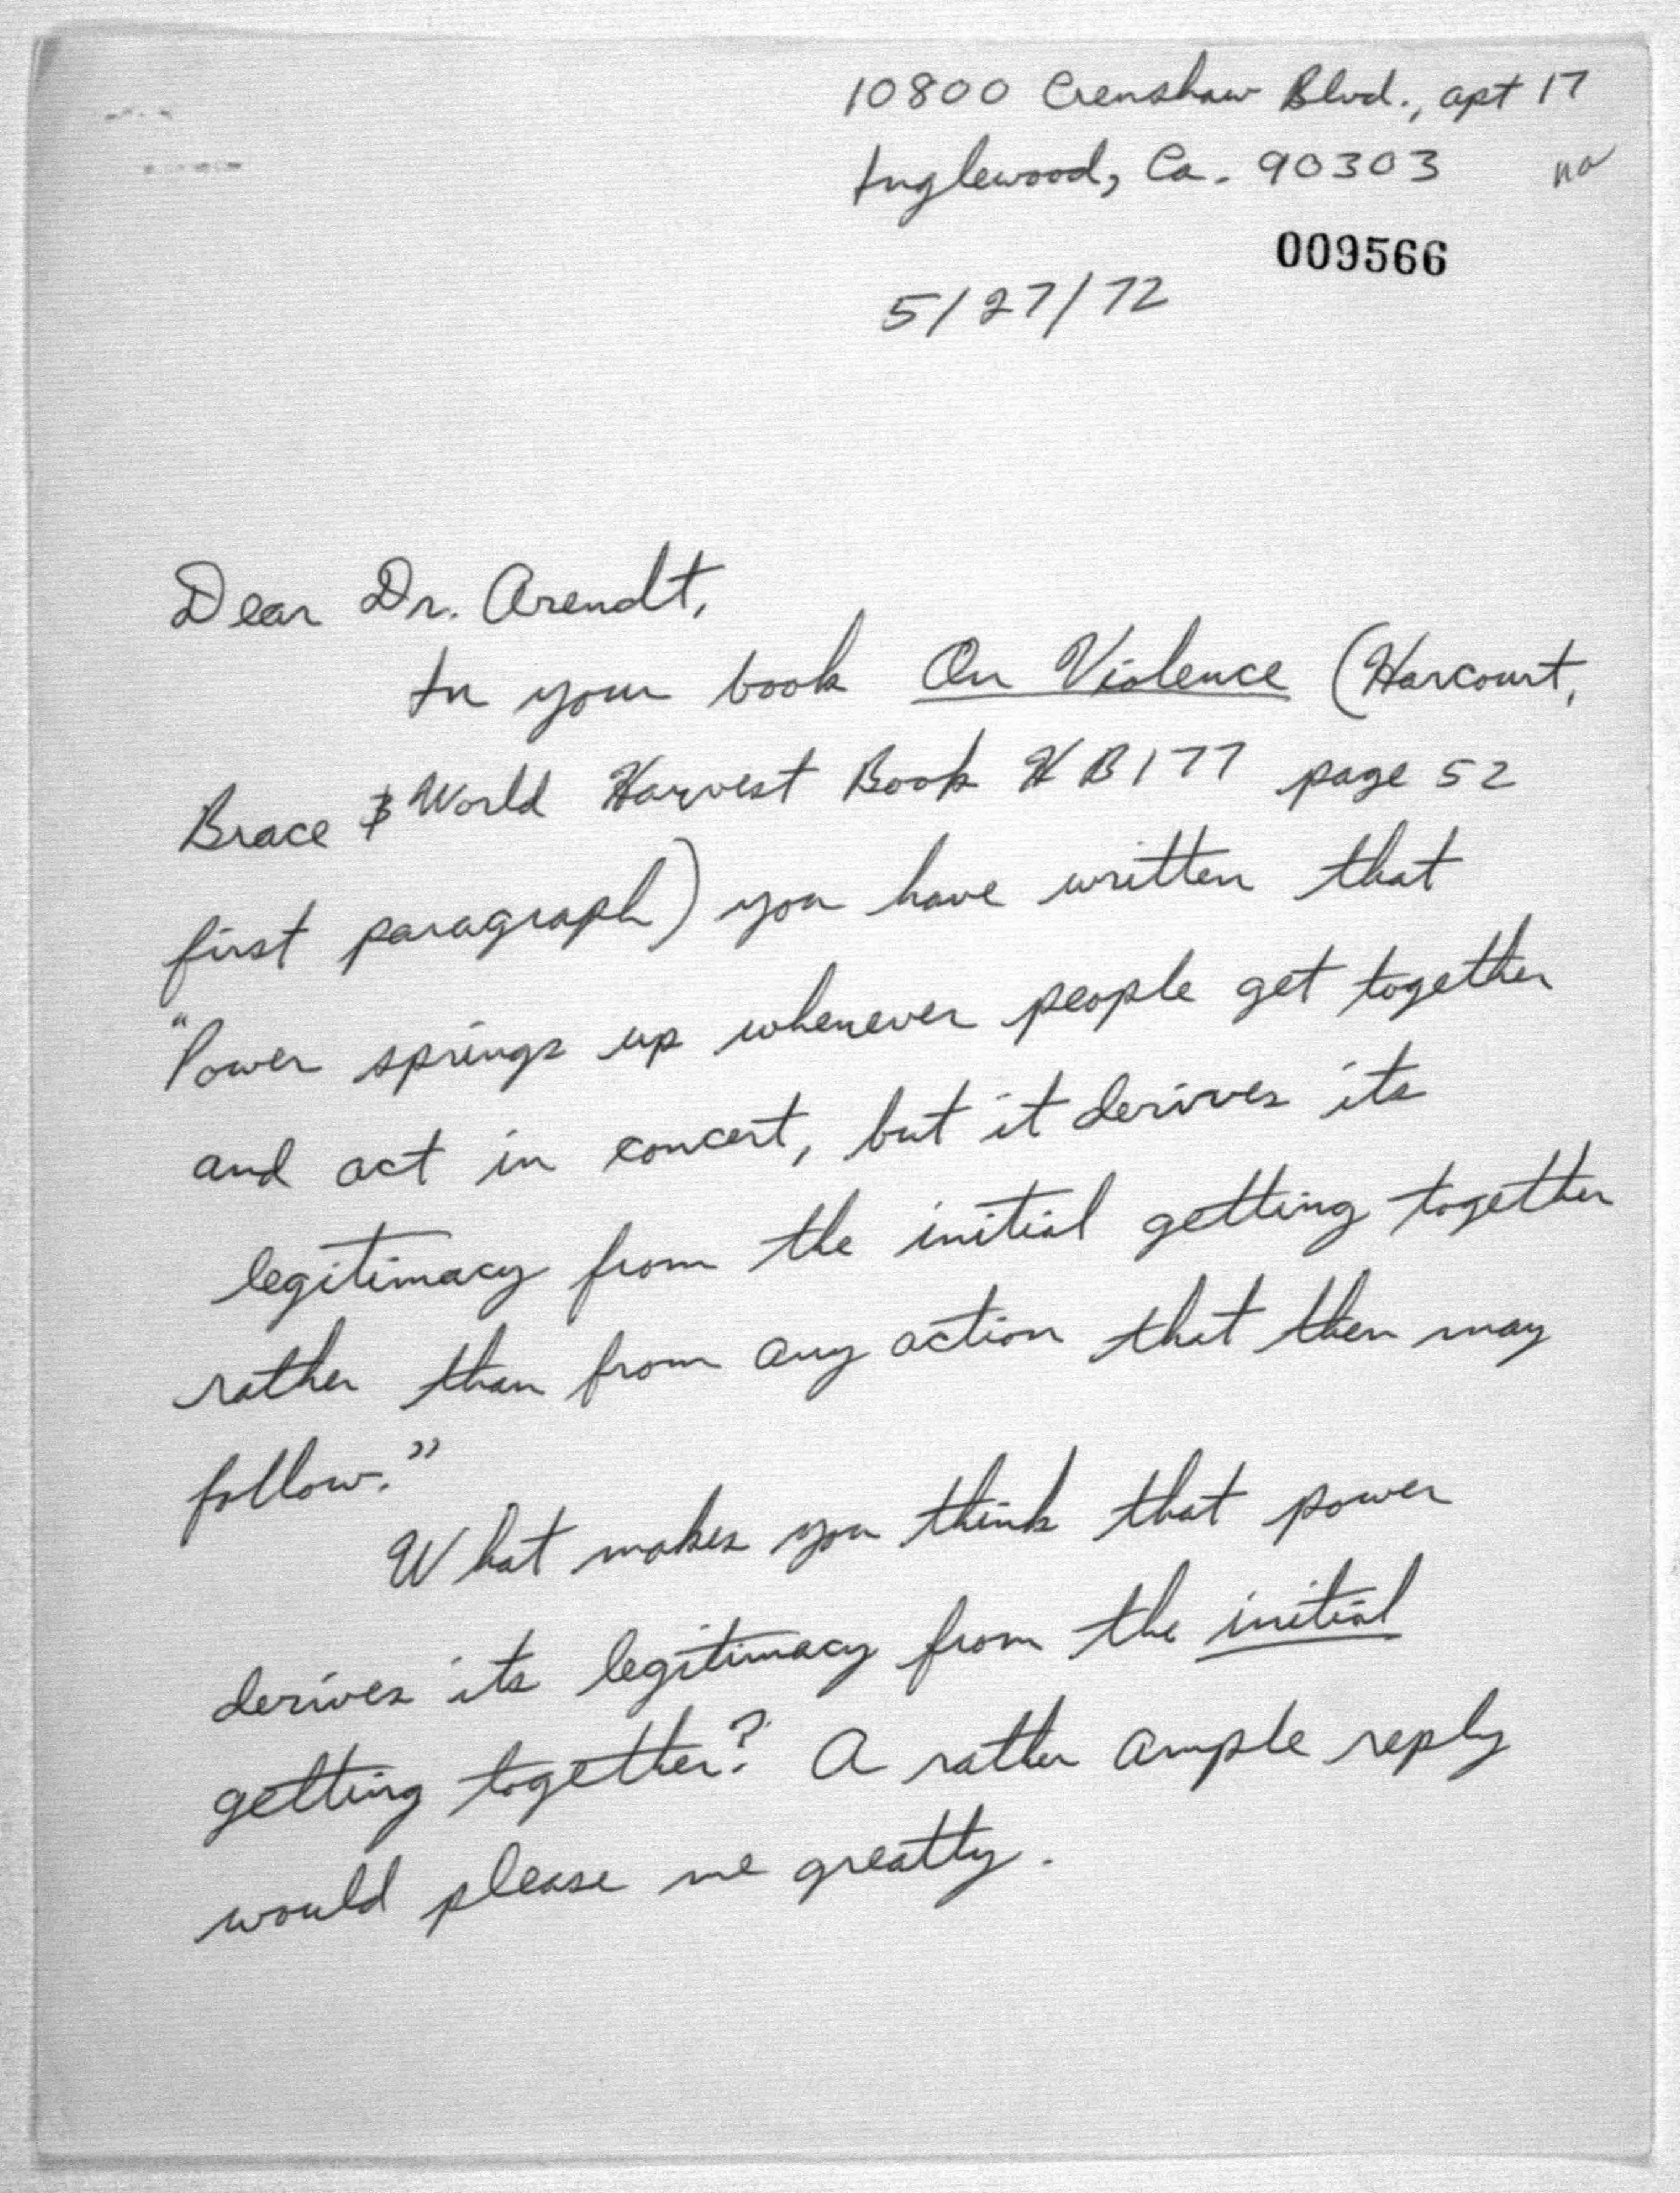 10800 Crenshaw Blvd., apt 17
Inglewood, Ca. 90303
na
009566
5/27/72
Dear Dr. Arendt,
In your book On Violence (Harcourt,
Brace & World Harvest Book HB177 page 52
first paragraph) you have written that
"Power springs up whenever people get together
and act in concert, but it derives its
legitimacy from the initial getting together
rather than from any action that then may
follow."
What makes you think that power
derives its legitimacy from the initial
getting together? A rather ample reply
would please me greatly.